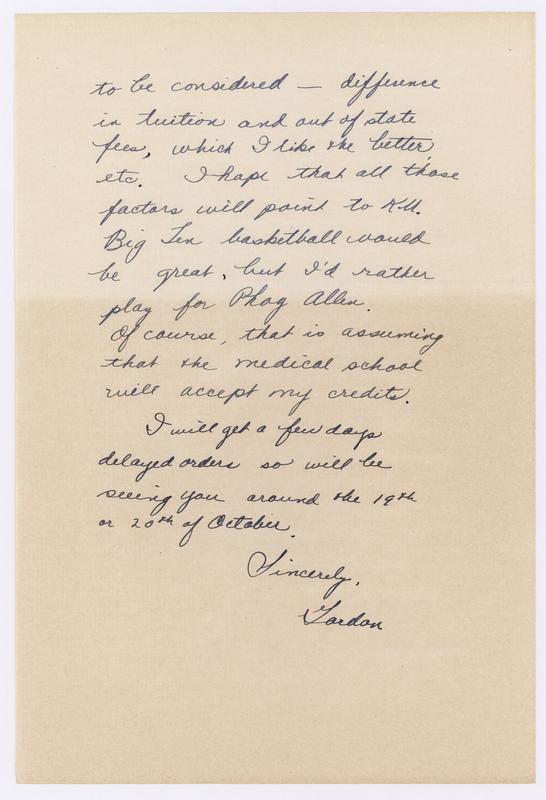 to be considered — difference
in tuition and out of state
fees, which I like the better,
etc. I hope that all those
factors will point to K.U.
Big Ten basketball would
be great, but I'd rather
play for Phog Allen.
Of course, that is assuming
that the medical school
will accept my credits.
I will get a few days
delayed orders so will be
seeing you around the 19th
or 20th of October.
Sincerely,
Gordon